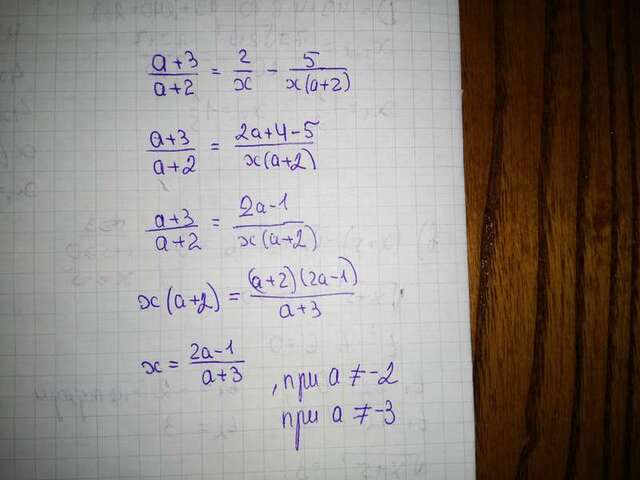 a+3/a+2 = 2/x - 5/x(a+2)
a+3/a+2 = 2a+4-5/x(a+2)
a+3/a+2 = 2a-1/x(a+2)
x(a+2) = (a+2)(2a-1)/a+3
x = 2a-1/a+3 , при a ≠ -2
при a ≠ -3